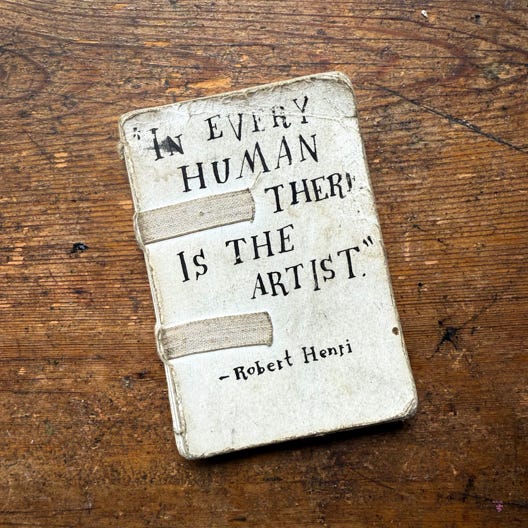 "IN EVERY
HUMAN
THERE
IS THE
ARTIST."
-Robert Henri